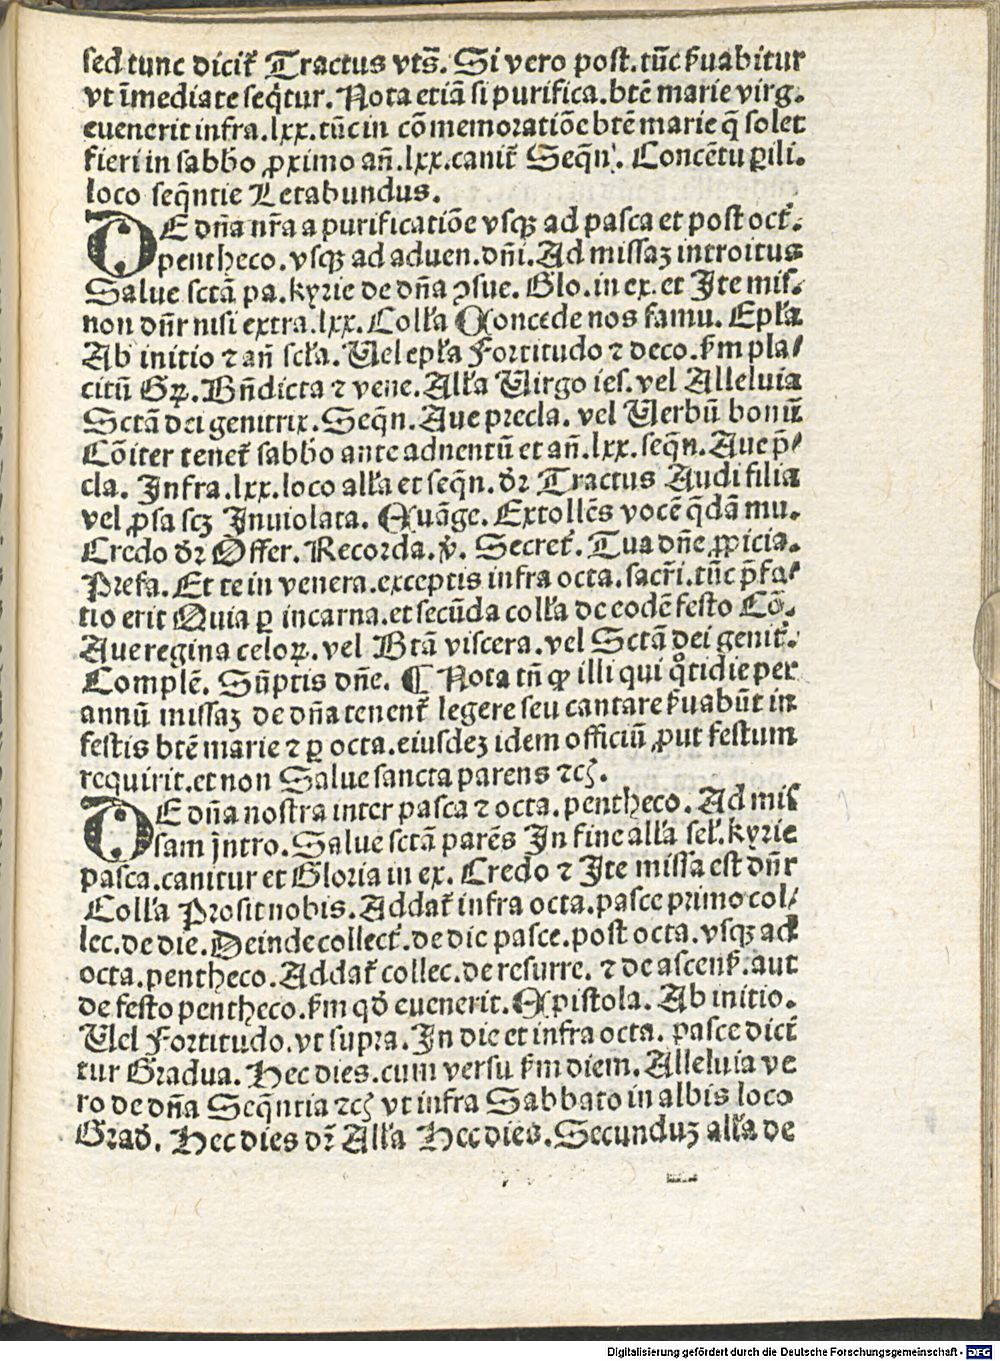 sed tunc dicit᷑ Tractus vts̄. Si vero post.tūc ẜuabitur
vt īmediate seq̄tur. Nota etiā si purifica.btē marie virg.
euenerit infra.lxx.tūc in cōmemoratiōe btē marie q̄ solet
fieri in sabb̄o ꝓximo an̄.lxx.canit᷑ Seq̄n̄. Concētu ꝑili.
loco seq̄ntie Letabundus.
DE dn̄a nr̄a a purificatiōe vsqꝫ ad pasca et post oct᷑.
pentheco.vsqꝫ ad aduen.dn̄i.Ad missaꝫ introitus
Salue sctā pa.kyrie de dn̄a ꝯsue. Glo.in ex.et Ite mis.
non dn̄r nisi extra.lxx.Coll̄a Concede nos famu. Epl̄a
Ab initio ⁊ an̄ scl̄a. Uel epl̄a Fortitudo ⁊ deco.ẜm pla/
citū Gꝝ.Bn̄dicta ⁊ vene.All̄a Uirgo ies.vel Alleluia
Sctā dei genitrix.Seq̄n.Aue precla. vel Uerbū bonū
Cōiter tenet᷑ sabb̄o ante aduentū et an̄.lxx.seq̄n.Aue p̄/
cla. Infra.lxx.loco all̄a et seq̄n.dr̄ Tractus Audi filia
vel ꝓsa scꝫ Inuiolata. Euāge. Extollēs vocē q̄dā mu.
Credo dr̄ Offer. Recorda.v̄. Secret᷑. Tua dn̄e ꝓpicia.
Prefa.Et te in venera.exceptis infra octa.sacr̄i.tūc p̄fa/
tio erit Quia ꝑ incarna.et secūda coll̄a de eodē festo Cō.
Aue regina celoꝝ.vel Btā viscera.vel Sctā dei genit᷑.
Complē. Sūptis dn̄e. ¶ Nota tn̄ ꝙ illi qui qͦtidie per
annū missaꝫ de dn̄a tenent᷑ legere seu cantare ẜuabūt in
festis btē marie ⁊ ꝑ octa.eiusdeꝫ idem officiū ꝓut festum
requirit.et non Salue sancta parens ⁊cꝭ.
DE dn̄a nostra inter pasca ⁊ octa.pentheco. Ad mis
sam intro.Salue sctā parēs In fine all̄a sel᷑.kyrie
pasca.canitur et Gloria in ex. Credo ⁊ Ite missa est dn̄r
Coll̄a Prosit nobis.Addat᷑ infra octa.pasce primo col/
lec.de die.Deinde collect᷑.de die pasce.post octa.vsqꝫ ad
octa.pentheco.Addat᷑ collec.de resurre. ⁊ de ascenẜ.aut
de festo pentheco.ẜm qd̄ euenerit.Epistola. Ab initio.
Uel Fortitudo.vt supra.In die et infra octa. pasce dicūt
tur Gradua. Hec dies.cum versu ẜm diem.Alleluia ve
ro de dn̄a Seq̄ntia ⁊cꝭ vt infra Sabbato in albis loco
Grad̄. Hec dies dr̄ All̄a Hec dies.Secunduꝫ all̄a de
Digitalisierung gefördert durch die Deutsche Forschungsgemeinschaft - DFG